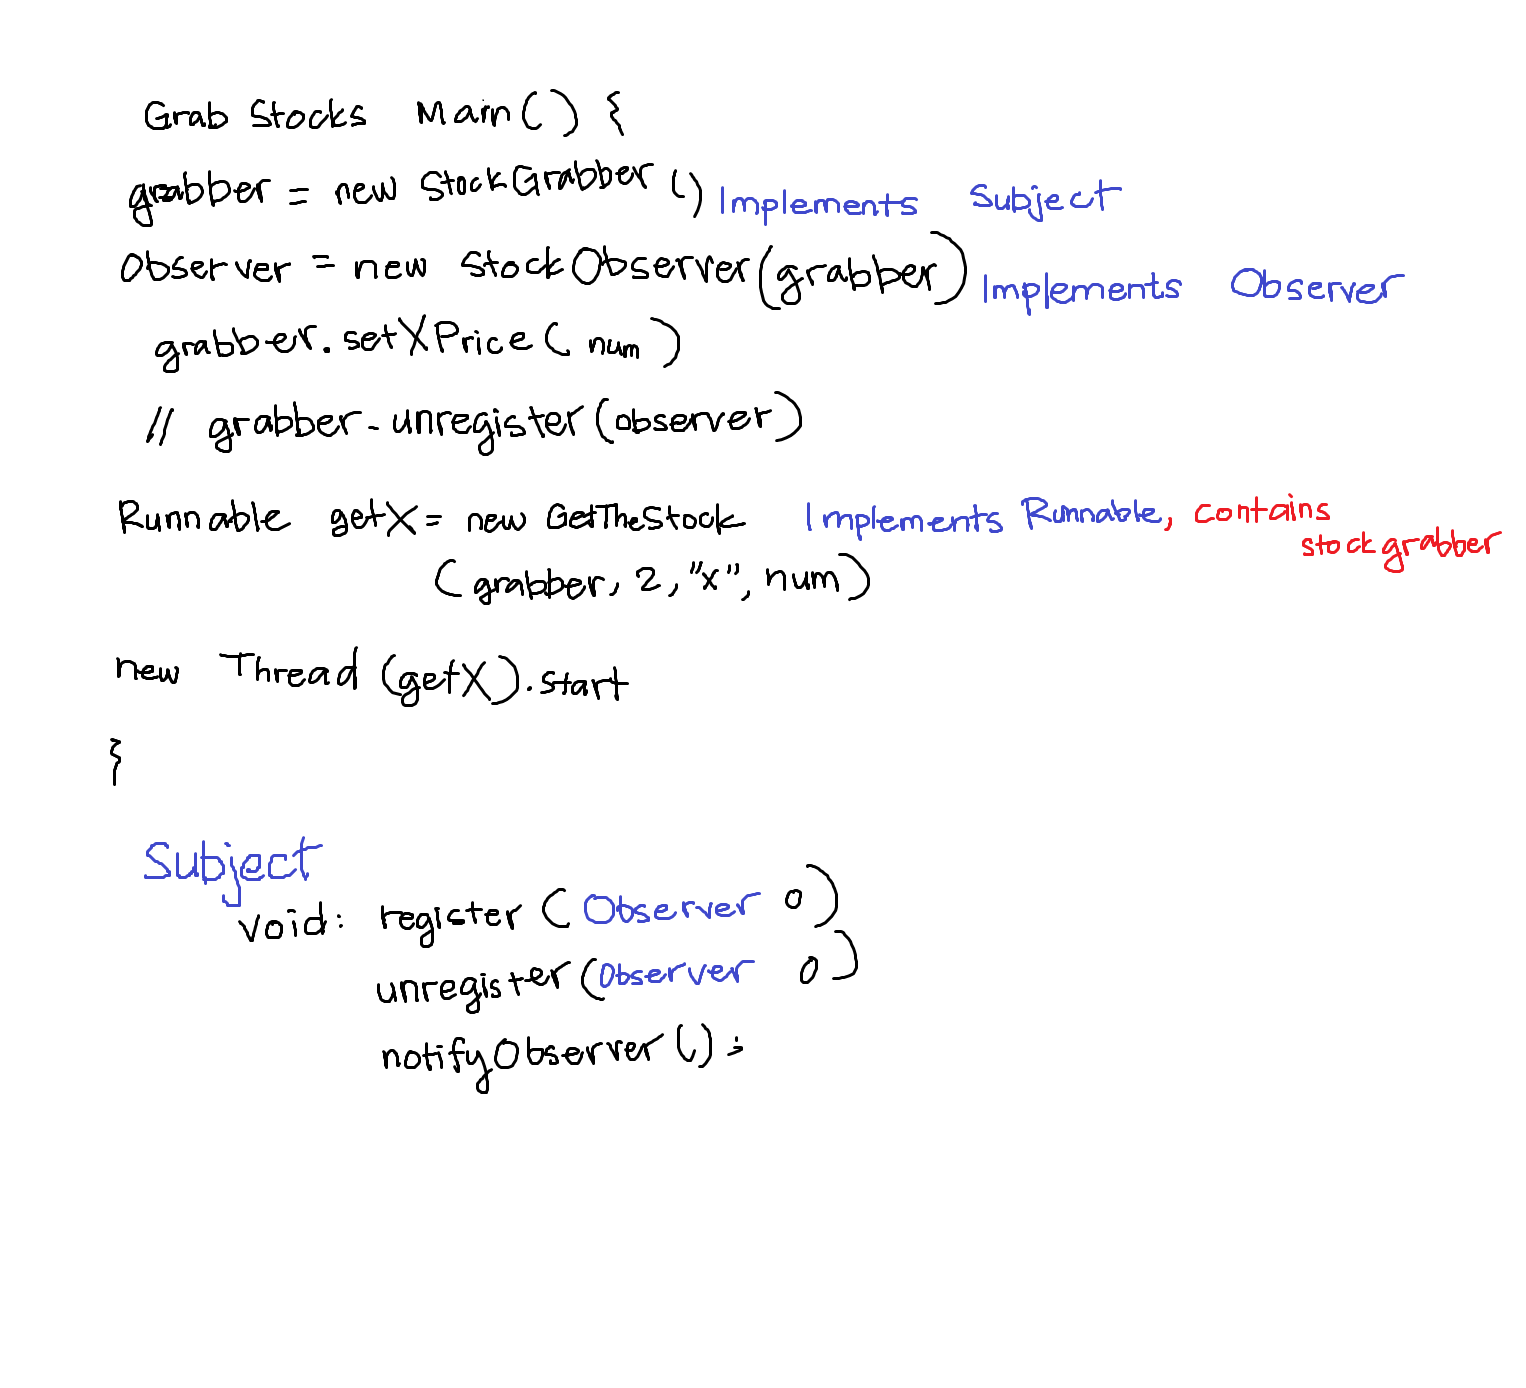 Grab Stocks Main() {
grabber = new StockGrabber () Implements Subject
Observer = new StockObserver(grabber) Implements Observer
grabber.setXPrice( num )
// grabber.unregister(observer)
Runnable getX = new GetTheStock Implements Runnable, contains
stockgrabber
(grabber, 2, "x", num)
new Thread (getX).start
}
Subject
void: register ( Observer o)
unregister(Observer o)
notifyObserver();